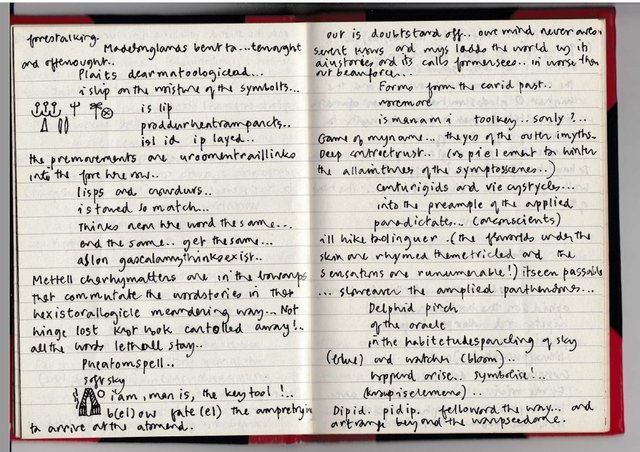 forestalking.
Madesinglands bent to... tenought
and oftenought..
Plaits dearmatoologiclead...
i slip on the moisture of the symbolts...
is lip
prodderhentramparts..
isl id ip layed..
the premovements are uroomentraillinks
into the
lisps and crowdurs..
is towed so match..
thinks near the word the same...
end the same.. get the same...
aslon gascalamythinksoexist..
Mettell cherhymatters are in the
that commutate the wordstories in that
hexistorallogicle meandering way... Not
hinge lost knot hook cantolled away!..
all the words lethall stay..
Pneatomspell..
soft sky
i am, man is, the key tool!..
b(el)ow fate(el) the ampretryin
to arrive at the atomend..
out is doubtstand off.. our mind never
servent knows and mys ladds the world us its
ainstories and its calls formerseeo.. in worse then
out beamforce...
Forms form the carid past..
noremore
is menam i toolkey.. sonly?...
Game of myname... theyes of the outer imyths.
Deep contrectrust.. (no pielement to hinter
the allainthnes of the symptoscenes..)
centurigids and vie cystycles...
into the preample of the applied
paradictats... (arcmscients)
ill hike toolinguer. (the flowords under the
skin are rhymed themetricled and the
sensations are runumerable!) itseen passable
... slowreaver the amplied panthendores...
Delphid pinch
of the oracle
in the habitetudespanceling of sky
(blue) and watcher (bloom)..
upppard arise.. symbolise!..
(knupiselemens)..
Dipid. pidip. felloword the way... and
arrange beyond the warpseedome.